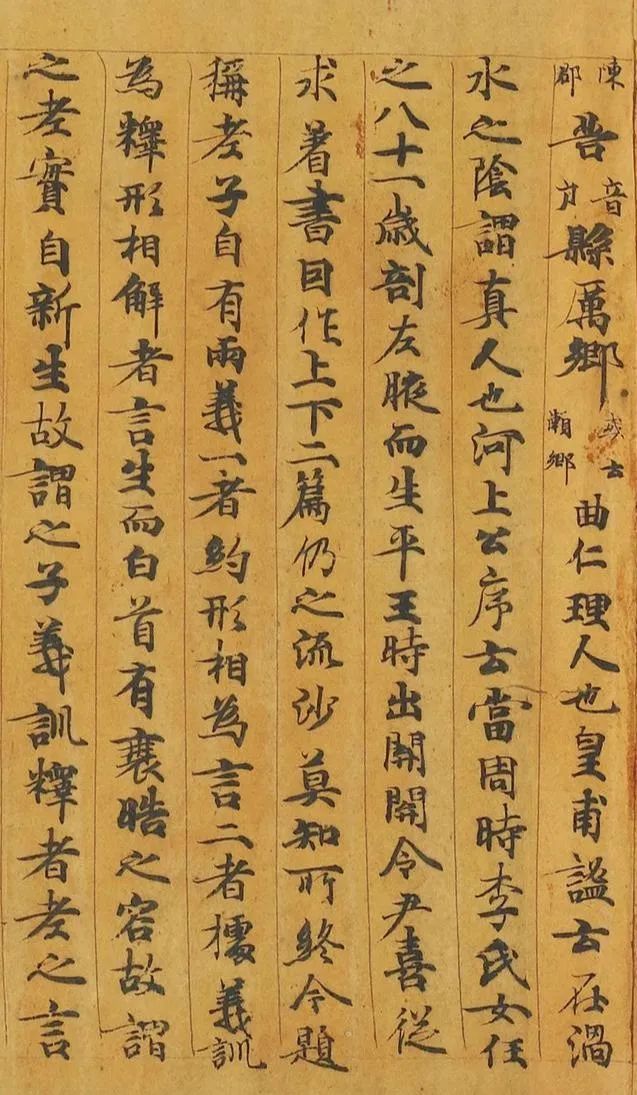 陳郡苦音縣厲鄉或云瀬鄉曲仁理人也皇甫謐云在渦
水之陰謂真人也河上公序云當周時李氏女任
之八十一歳剖左腋而生平王時出関関令尹喜從
求著書因作上下二篇仍之流沙莫知所終今題
稱老子自有兩義一者約形相為言二者據義訓
為釋形相解者言生而白首有衰晧之容故謂
之老實自新生故謂之子義訓釋者老之言